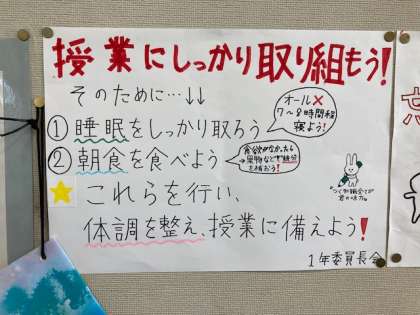 授業にしっかり取り組もう!
そのために…↓↓
①睡眠をしっかり取ろう
オール×
7〜8時間程
寝よう!
②朝食を食べよう
食欲がなかったら
果物などで糖分
を補おう!
これらを行い、
体調を整え、授業に備えよう!
1年委員長会